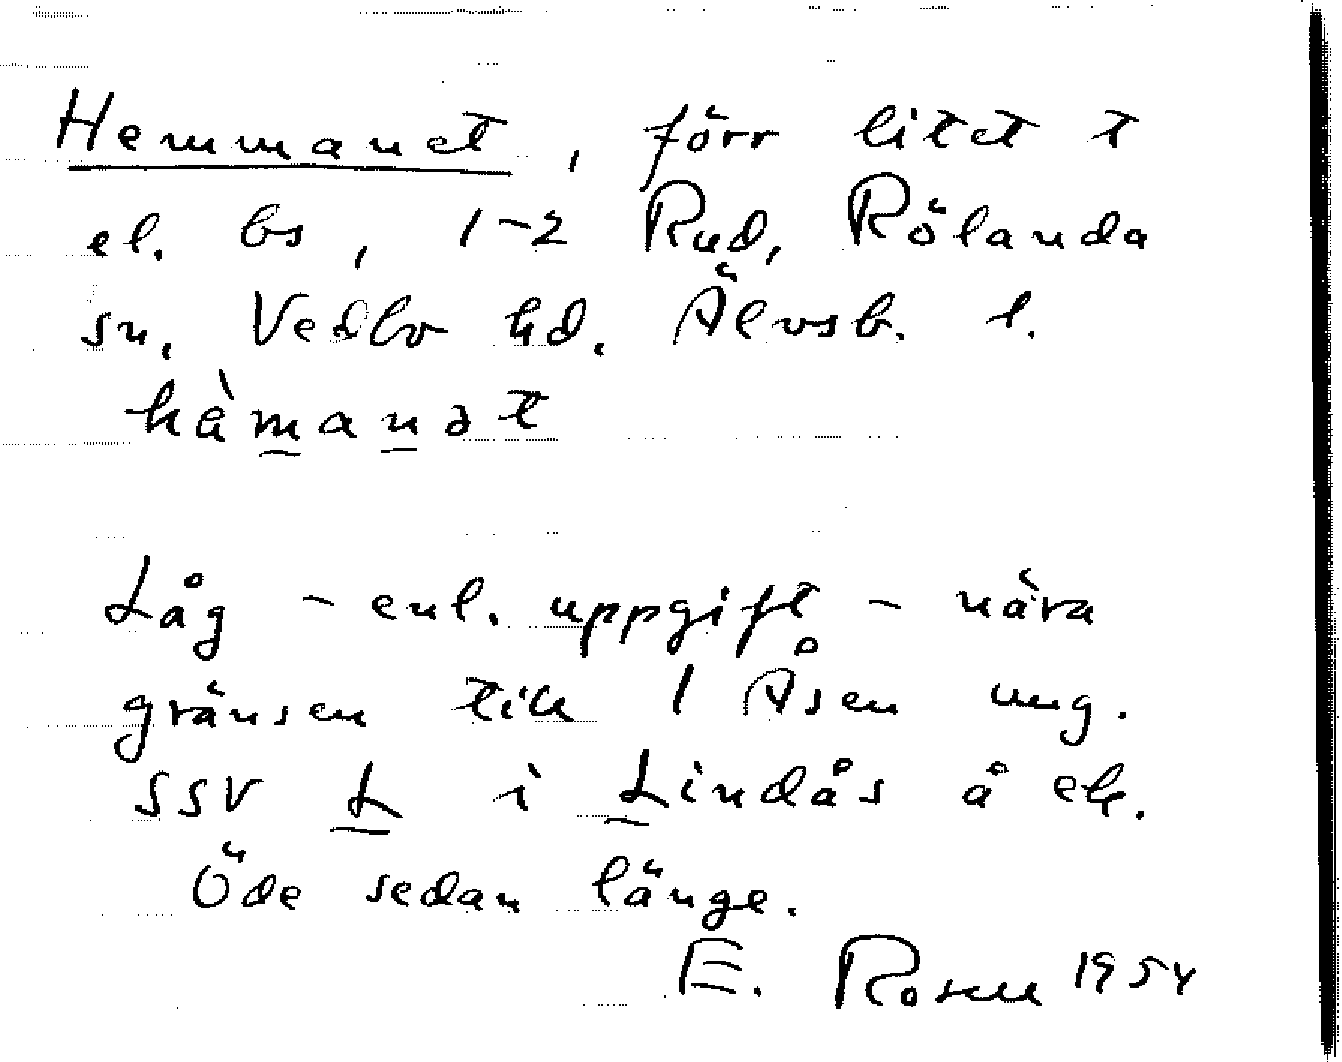 Hemmanet, förr litet t
el. bs, 1-2 Rud, Rölanda
sn, Vedbo hd. Älvsb. l.
hàmanət
Låg - enl. uppgift - nära
gränsen till 1 Åsen ung.
SSV L i Lindås å ek.
Öde sedan länge.
E. Rosell 1954